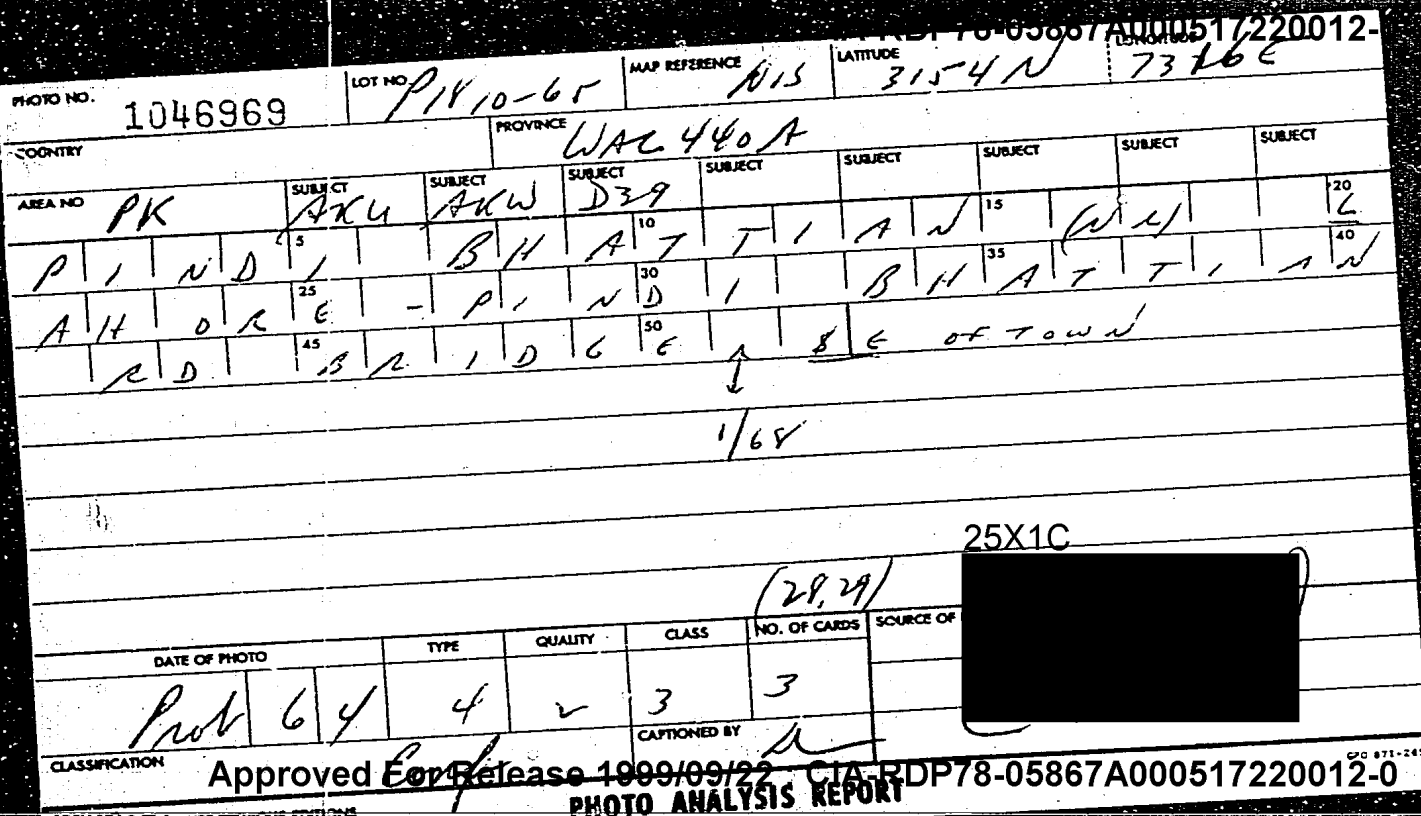 RDP78-05867A000517220012-
PHOTO NO. 1046969 LOT NO P1810-65 MAP REFERENCE NIS LATITUDE 3154N LONGITUDE 7316E
COUNTRY PROVINCE WAC 440A
AREA NO PK SUBJECT AKU SUBJECT AKW SUBJECT D39 SUBJECT SUBJECT SUBJECT SUBJECT SUBJECT
PINDI BHATTIAN (NE) L
AHORE - PINDI BHATTIAN
RD BRIDGE SE OF TOWN
1/68
25X1C
(28,29)
DATE OF PHOTO TYPE QUALITY CLASS NO. OF CARDS SOURCE OF
Prob 64 4 2 3 3
CAPTIONED BY
CLASSIFICATION Conf
Approved For Release 1999/09/22 CIA-RDP78-05867A000517220012-0
PHOTO ANALYSIS REPORT